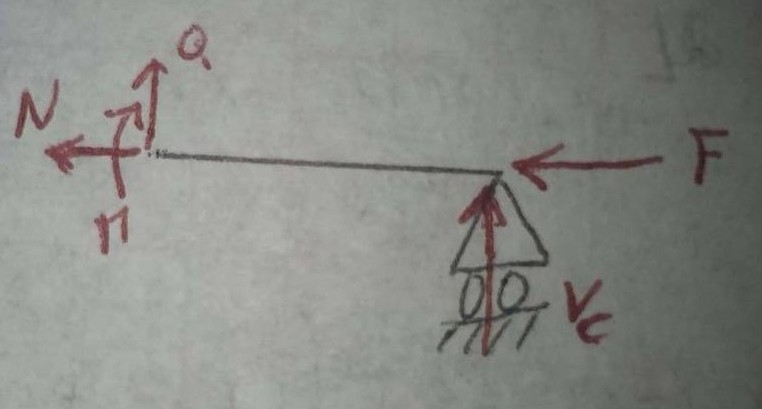 F
Vc
Q
M
N